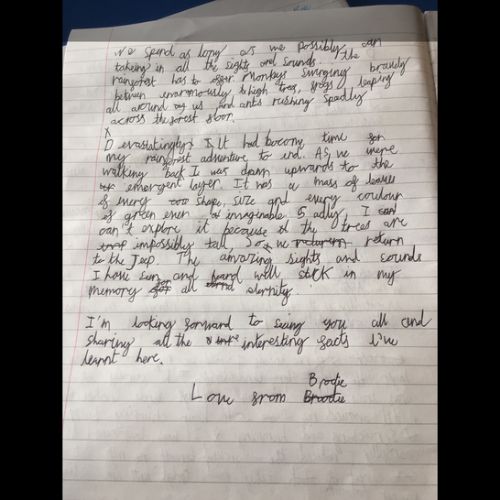 We spend as long as we possibly can
takeing in all the sights and sounds. The
rainforest has to offer. Monkeys swinging bravely
between enarmously high trees, frogs leaping
all around us and ants rushing speadly
across the forest floor.
X
Devastatingly, it had become time for
my rainforest adventure to end. As we were
walking back I was drawn upwards to the
emergent layer. It was a mass of leaves
of every shape, size and every coulour
of green ever imaginable. Sadly, I
can't explore it because the trees are
impossibly tall, So we return
to the Jeep. The amazing sights and sounds
I have seen and heard will stick in my
memory for all eternity.
I'm looking forward to seing you all and
sharing all the interesting facts I've
learnt here.
Love from Brodie